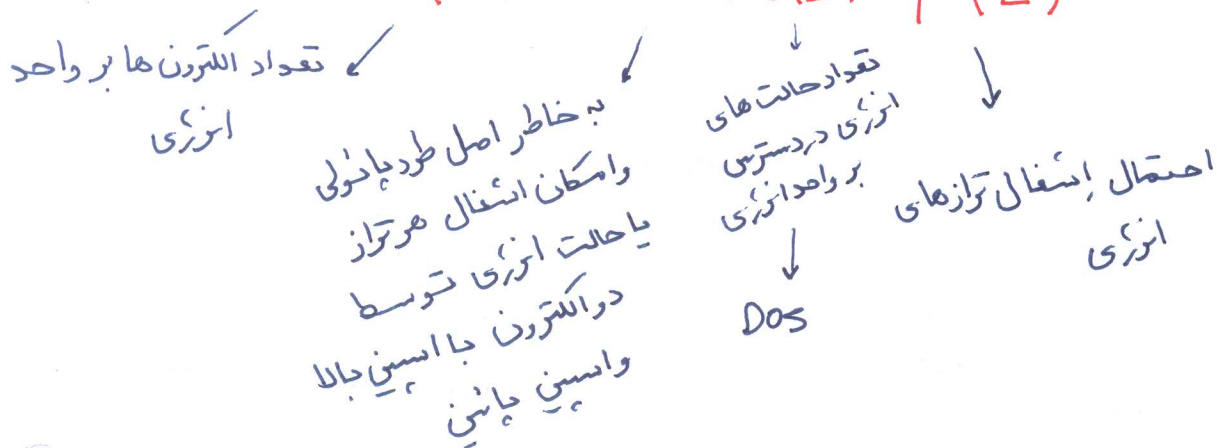 (E) (E)
تعداد الکترون ها بر واحد
انرژی
به خاطر اصل طرد پائولی
و امکان اشغال هر تراز
یا حالت انرژی توسط
دو الکترون با اسپین بالا
و اسپین پائین
تعداد حالت های
انرژی در دسترس
بر واحد انرژی
DOS
احتمال اِشغال ترازهای
انرژی